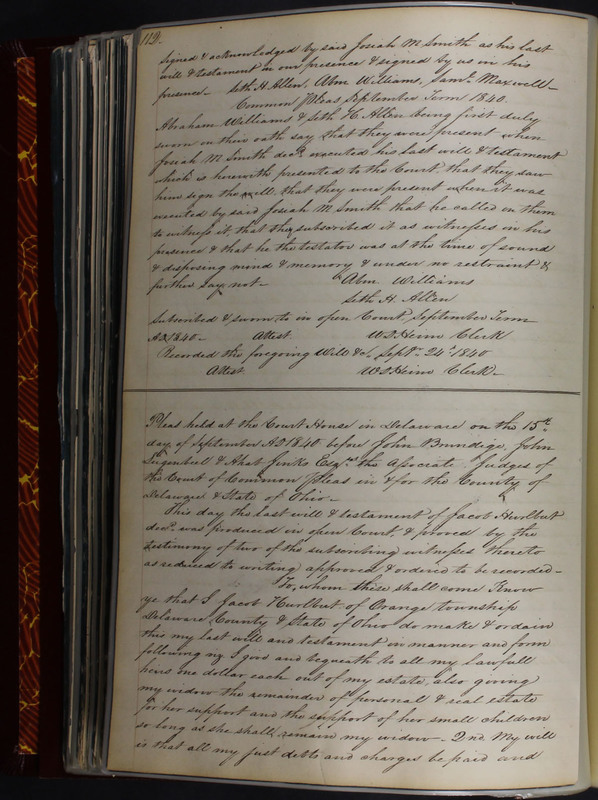 112.
Signed & acknowledged by said Josiah M Smith as his last
will & testament in our presence & signed by us in his
presence – Seth H Allen, Abm Williams, Saml. Maxwell –
Common Pleas September Term 1840.
Abraham Williams & Seth H. Allen being first duly
sworn on their oath say that they were present when
Josiah M Smith decd. executed his last will & testament
which is herewith presented to the Court, that they saw
him sign the will, that they were present when it was
executed by said Josiah M Smith that he called on them
to witness it, that they subscribed it as witnesses in his
presence & that he the testator was at the time of sound
& disposing mind & memory & under no restraint &
further say not – Abm Williams
Seth H. Allen
Subscribed & sworn to in open Court, September Term
AD 1840 – Attest W S Heim Clerk
Recorded the foregoing Will &c. Septr. 24th 1840
Attest W S Heim Clerk –
Pleas held at the Court House in Delaware on the 15th
day of September AD 1840 before John Brundige, John
Lugenbeel & Ahab Jinks Esqrs. the Associate Judges of
the Court of Common Pleas in & for the County of
Delaware & State of Ohio –
This day the last will & testament of Jacob Hurlbut
decd. was produced in open Court, & proved by the
testimony of two of the subscribing witnesses thereto
as reduced to writing approved & ordered to be recorded –
To, whom these shall come Know
ye that I Jacob Hurlbut of Orange township
Delaware County & State of Ohio do make & ordain
this my last will and testament in manner and form
following viz I give and bequeath to all my lawfull
heirs one dollar each out of my estate, also giving
my widow the remainder of personal & real estate
for her support and the support of her small children
so long as she shall remain my widow – 2nd My will
is that all my just debts and charges be paid and